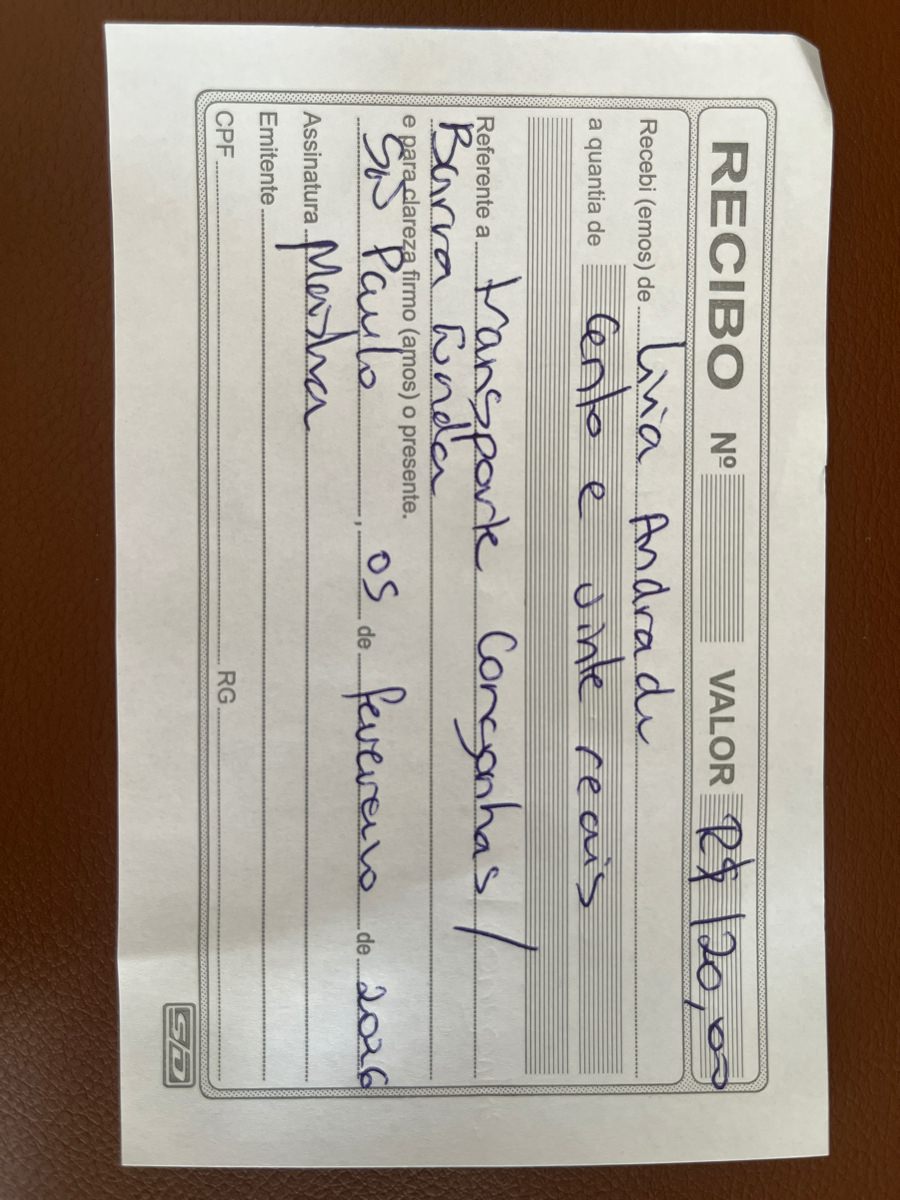 RECIBO Nº VALOR R$ 120,00
Recebi (emos) de Livia Andrade
a quantia de Cento e vinte reais
Referente a transporte Congonhas /
Barra Funda
e para clareza firmo (amos) o presente.
São Paulo, 05 de fevereiro de 2026
Assinatura
Emitente
CPF RG
SD